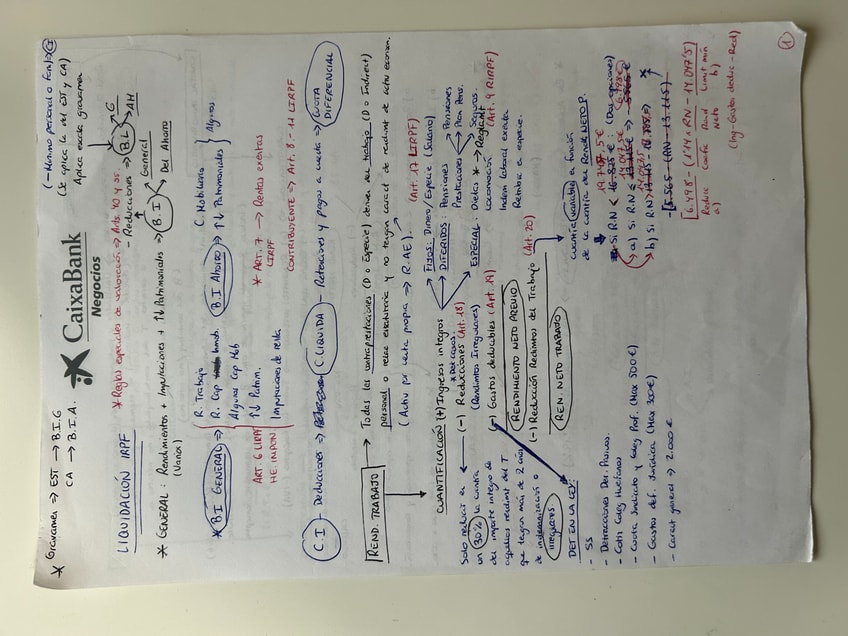 * Gravamen => EST → B.I.G
CA → B.I.A.
CaixaBank
Negocios
(- Mínimo personal o fam) x CI
(Se aplica la del EST y CA)
Aplica escala gravamen
LIQUIDACIÓN IRPF
* Reglas especiales de valoración => Arts. 40 y ss
- Reducciones => B.L
G
AH
* GENERAL: Rendimientos + Imputaciones + ↑↓ Patrimoniales => B.I
General
Del Ahorro
(Varios)
* BI GENERAL =>
R. Trabajo
R. Cap Inmob.
Algunos Cap Mob
↑↓ Patrim.
Imputaciones de renta
B.I Ahorro =>
C. Mobiliario
↑↓ Patrimoniales
Algunos
ART. 6 LIRPF
HE. IMPON
* ART. 7 → Rentas exentas
LIRPF
CONTRIBUYENTE => Art. 8 - 11 LIRPF
C I - Deducciones => C. LIQUIDA - Retenciones y pagos a cuenta => CUOTA DIFERENCIAL
REND. TRABAJO → Todas las contraprestaciones (D o Especie) derivan del trabajo (D o Indirect)
personal o relac estatutaria y no tengan caract de rendimt de activ econom.
(Activ por cuenta propia → R.AE)
CUANTIFICACIÓN (+) Ingresos íntegros
(Art. 17 LIRPF)
FIJOS: Dinero/Especie (Salario)
DIFERIDOS: Pensiones
Prestaciones
Pensiones
Plan Pens.
Seguros
ESPECIAL: Dietas * → Reglamt
Locomoción (Art. 9 RIRPF)
Indem laboral exenta
* Dos casos
(-) Reducciones (Art. 18)
(Rendimtos Irregulares)
Solo reducir en
un 30% la cuantía
del importe íntegro de
aquellos rendimt del T.
que tengan más de 2 años
de indemnización o
irregulares
(-) Gastos deducibles (Art. 19)
RENDIMIENTO NETO PREVIO
(-) Reducción Rendimtos del Trabajo (Art. 20)
REN. NETO TRABAJO
cuantía variable en función
de la cuantía del RENDT. NETO P.
* Si R.N < 16.825 € : (Dos opciones)
19.747,5 €
14.047,5 €
6.498 €
a) Si R.N ≤ 13.115 € => 5.565 €
b) Si R.N > 13.115 -
*
- [5.565 - (RN - 13.115)
[6.498 - (1'14 x RN - 14.047'5)]
Reducc Coefic Rend Limit mín
a) Neto b)
(Ing - Gastos deduc - Red)
DET EN LA LEY:
- SS
- Detracciones Der. Pasivos.
- Cotiz Coleg Huérfanos
- Cuota Sindicato y Coleg Prof. (Max 500 €)
- Gastos def. Jurídica (Max 300 €)
- Caract general => 2.000 €
1